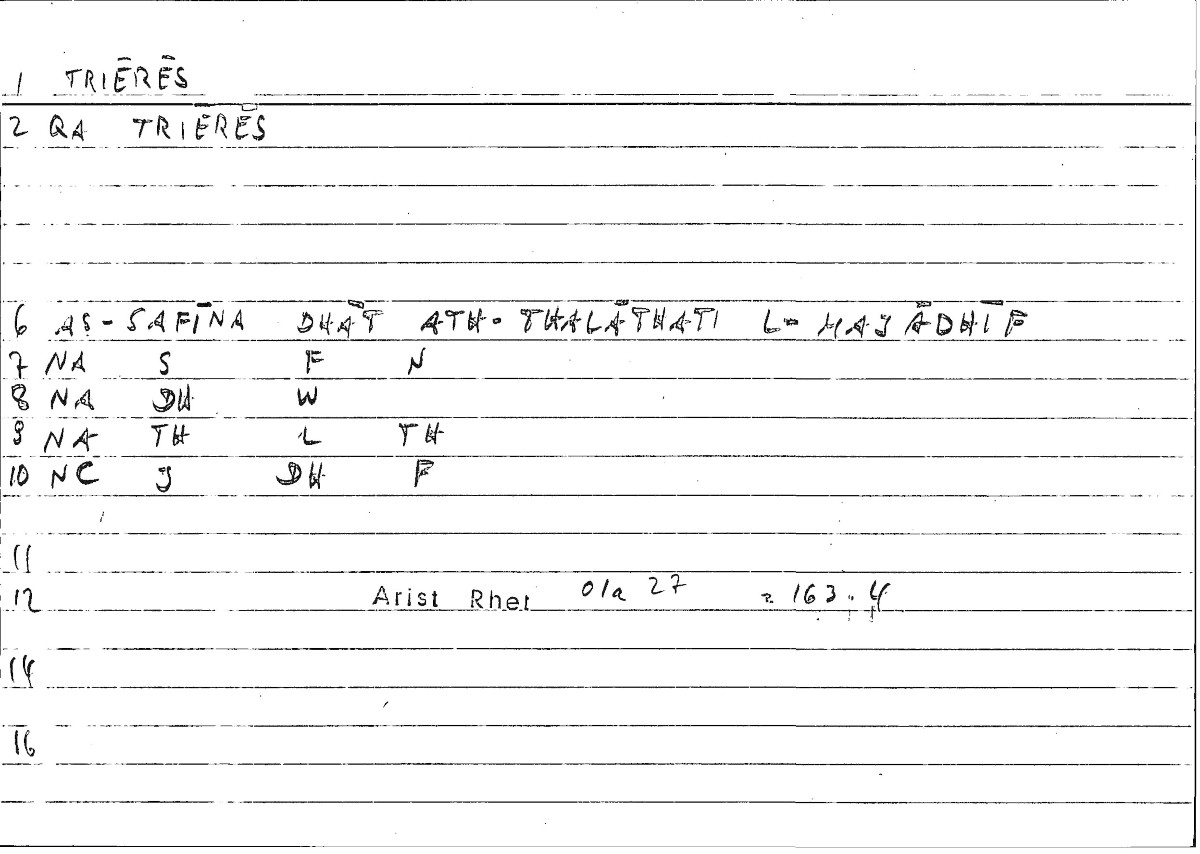 1 TRIĒRĒS
2 QA TRIĒRĒS
6 AS-SAFĪNA DHĀT ATH-THALĀTHATI L-MAJĀDHĪF
7 NA S F N
8 NA DH W
9 NA TH L TH
10 NC J DH F
11
12 Arist Rhet 01a 27 = 163.4
14
16